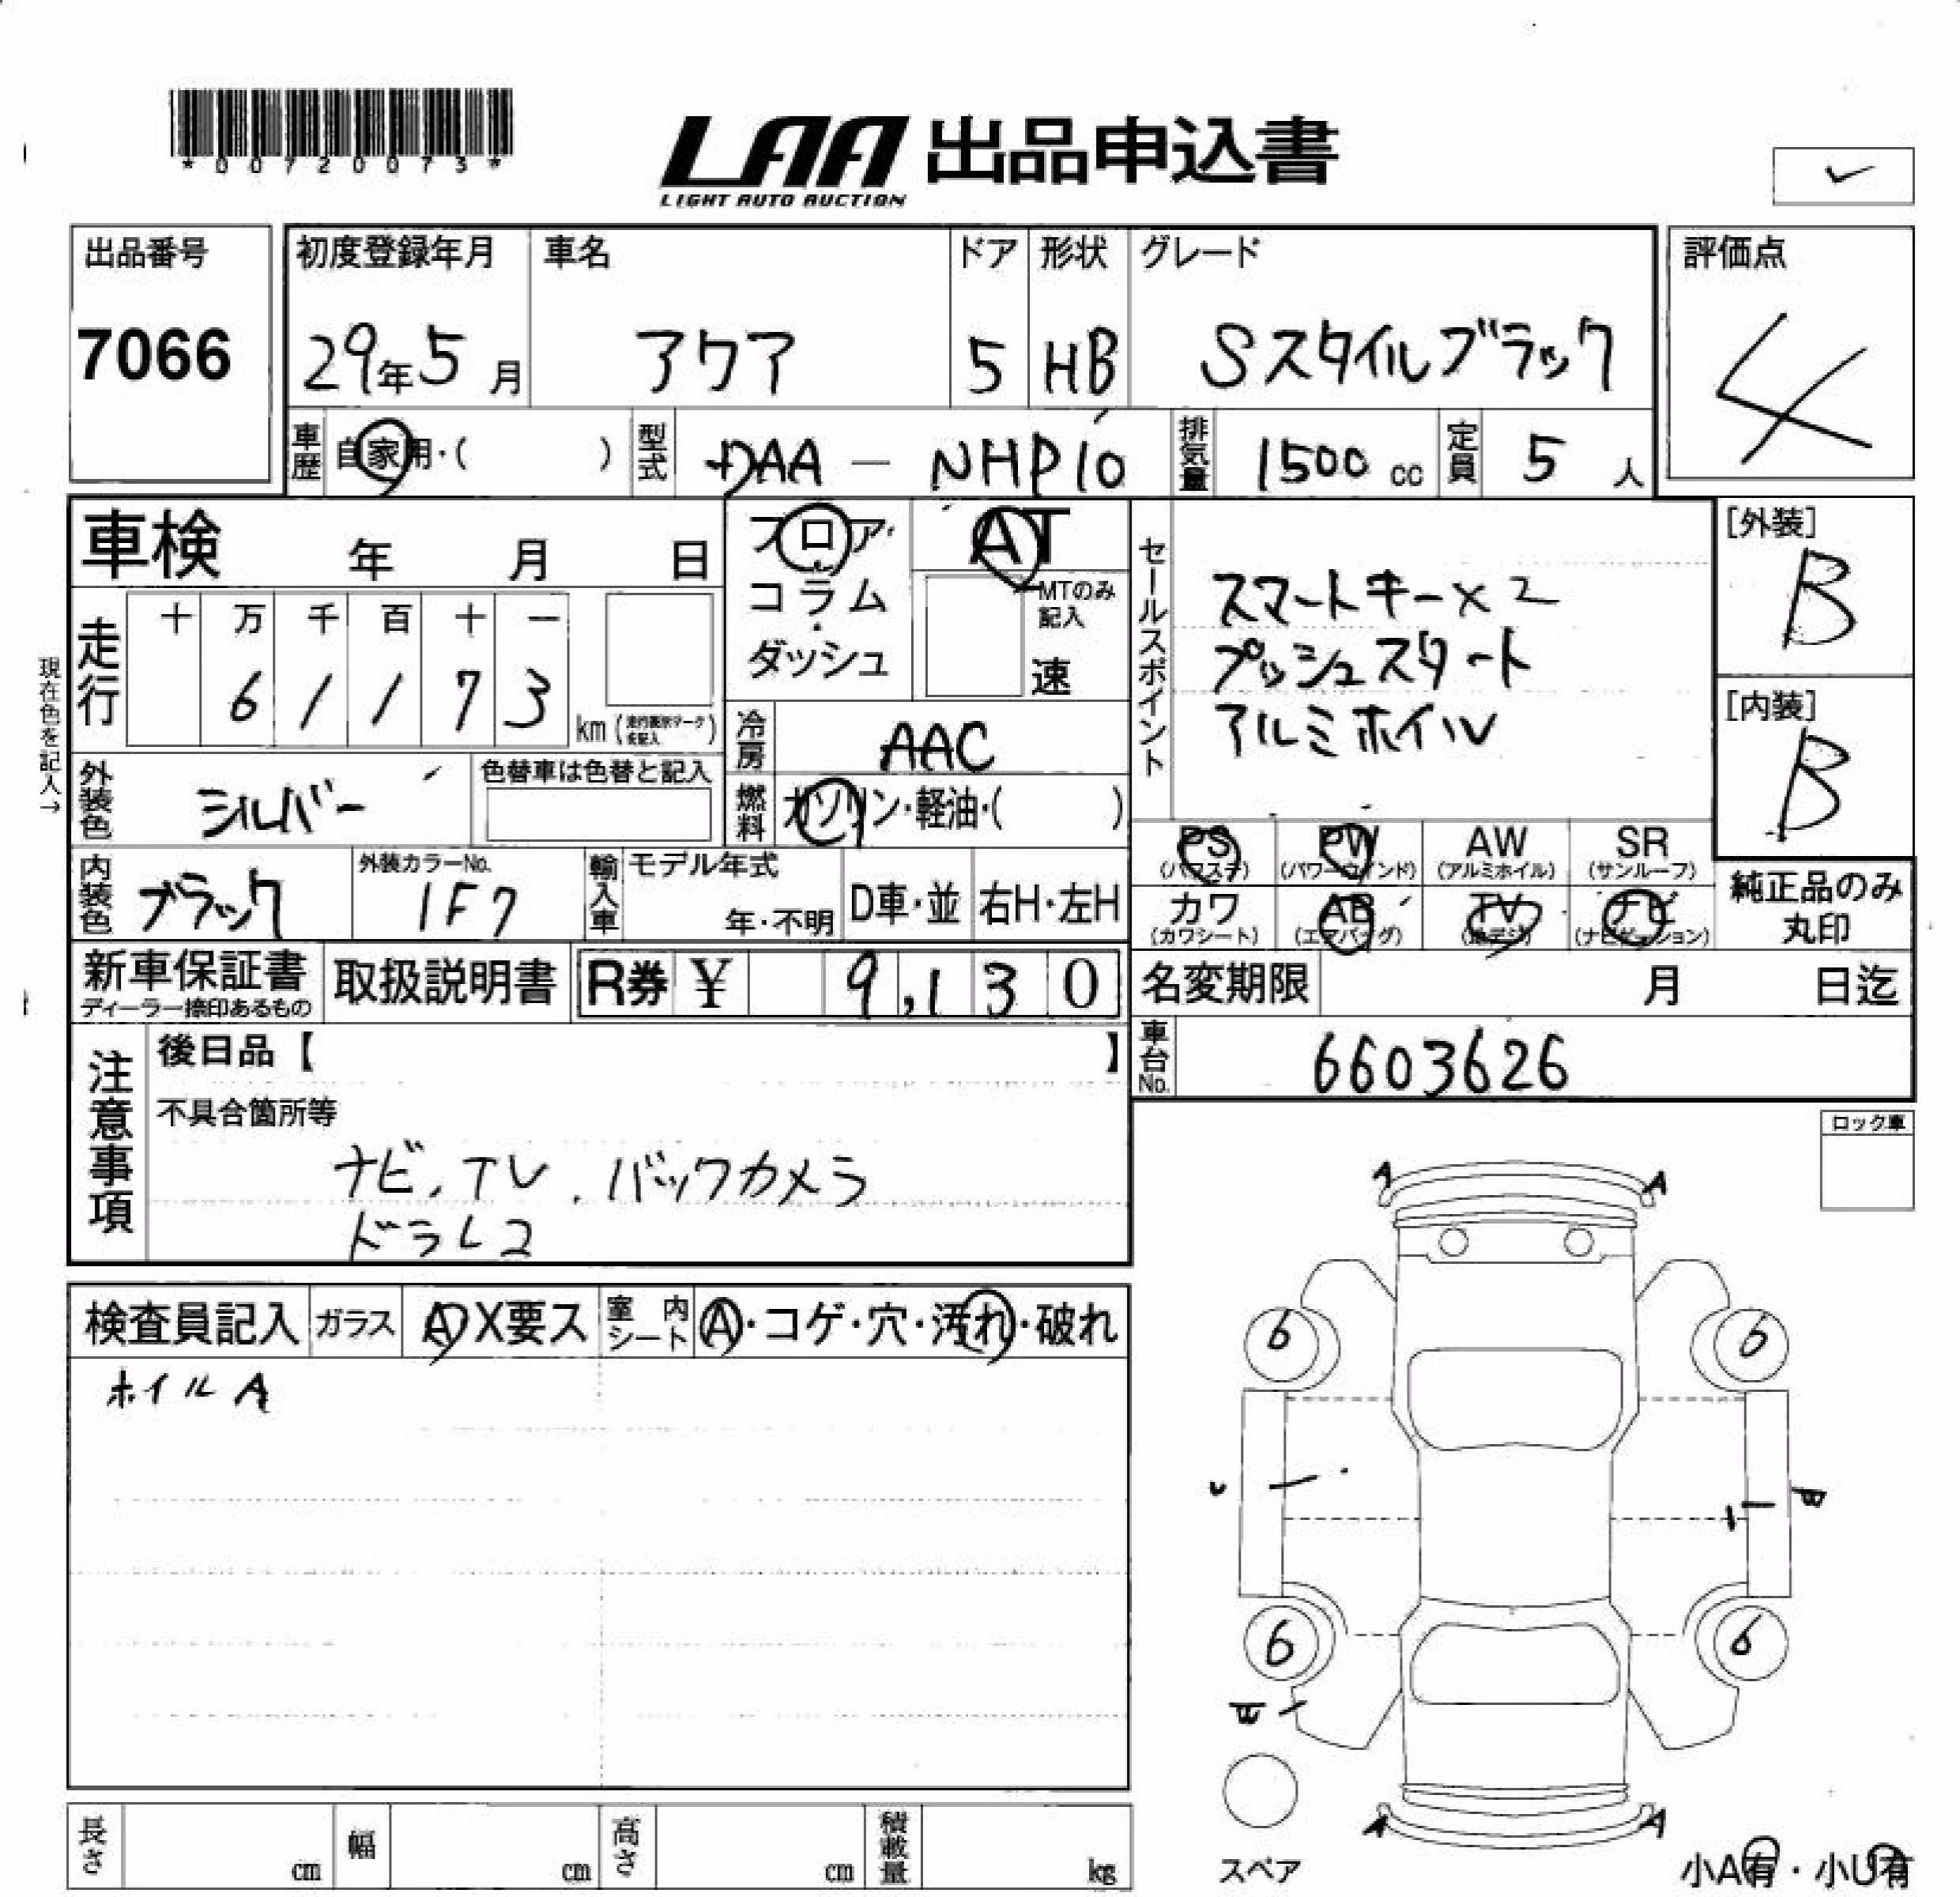 *00720073*
LAA 出品申込書
LIGHT AUTO AUCTION
出品番号
7066
初度登録年月
29年5月
車名
アクア
ドア
5
形状
HB
グレード
Sスタイルブラック
評価点
4
車歴
自家用・( )
型式
DAA - NHP10
排気量
1500 cc
定員
5 人
車検 年 月 日
フロア・
コラム
・
ダッシュ
AT
MTのみ
記入
速
セールスポイント
スマートキー×2
プッシュスタート
アルミホイル
[外装]
B
[内装]
B
現在色を記入→
走行
十 万 千 百 十 一
6 1 1 7 3
km
冷房
AAC
外装色
シルバー
色替車は色替と記入
燃料
ガソリン・軽油・( )
PS
(パワステ)
PW
(パワーウインド)
AW
(アルミホイル)
SR
(サンルーフ)
カワ
(カワシート)
AB
(エアバッグ)
TV
(地デジ)
ナビ
(ナビゲーション)
純正品のみ
丸印
内装色
ブラック
外装カラーNo.
1F7
輸入車
モデル年式
年・不明
D車・並
右H・左H
新車保証書
ディーラー捺印あるもの
取扱説明書
R券 ¥ 9,130
名変期限 月 日迄
車台No.
6603626
注意事項
後日品【 】
不具合箇所等
ナビ、TV、バックカメラ
ドラレコ
ロック車
検査員記入
ガラス
A X要ス
室内シート
A・コゲ・穴・汚れ・破れ
ホイルA
A A
6 6
6 6
A A
スペア
小A有・小U有
長さ cm
幅 cm
高さ cm
積載量 kg